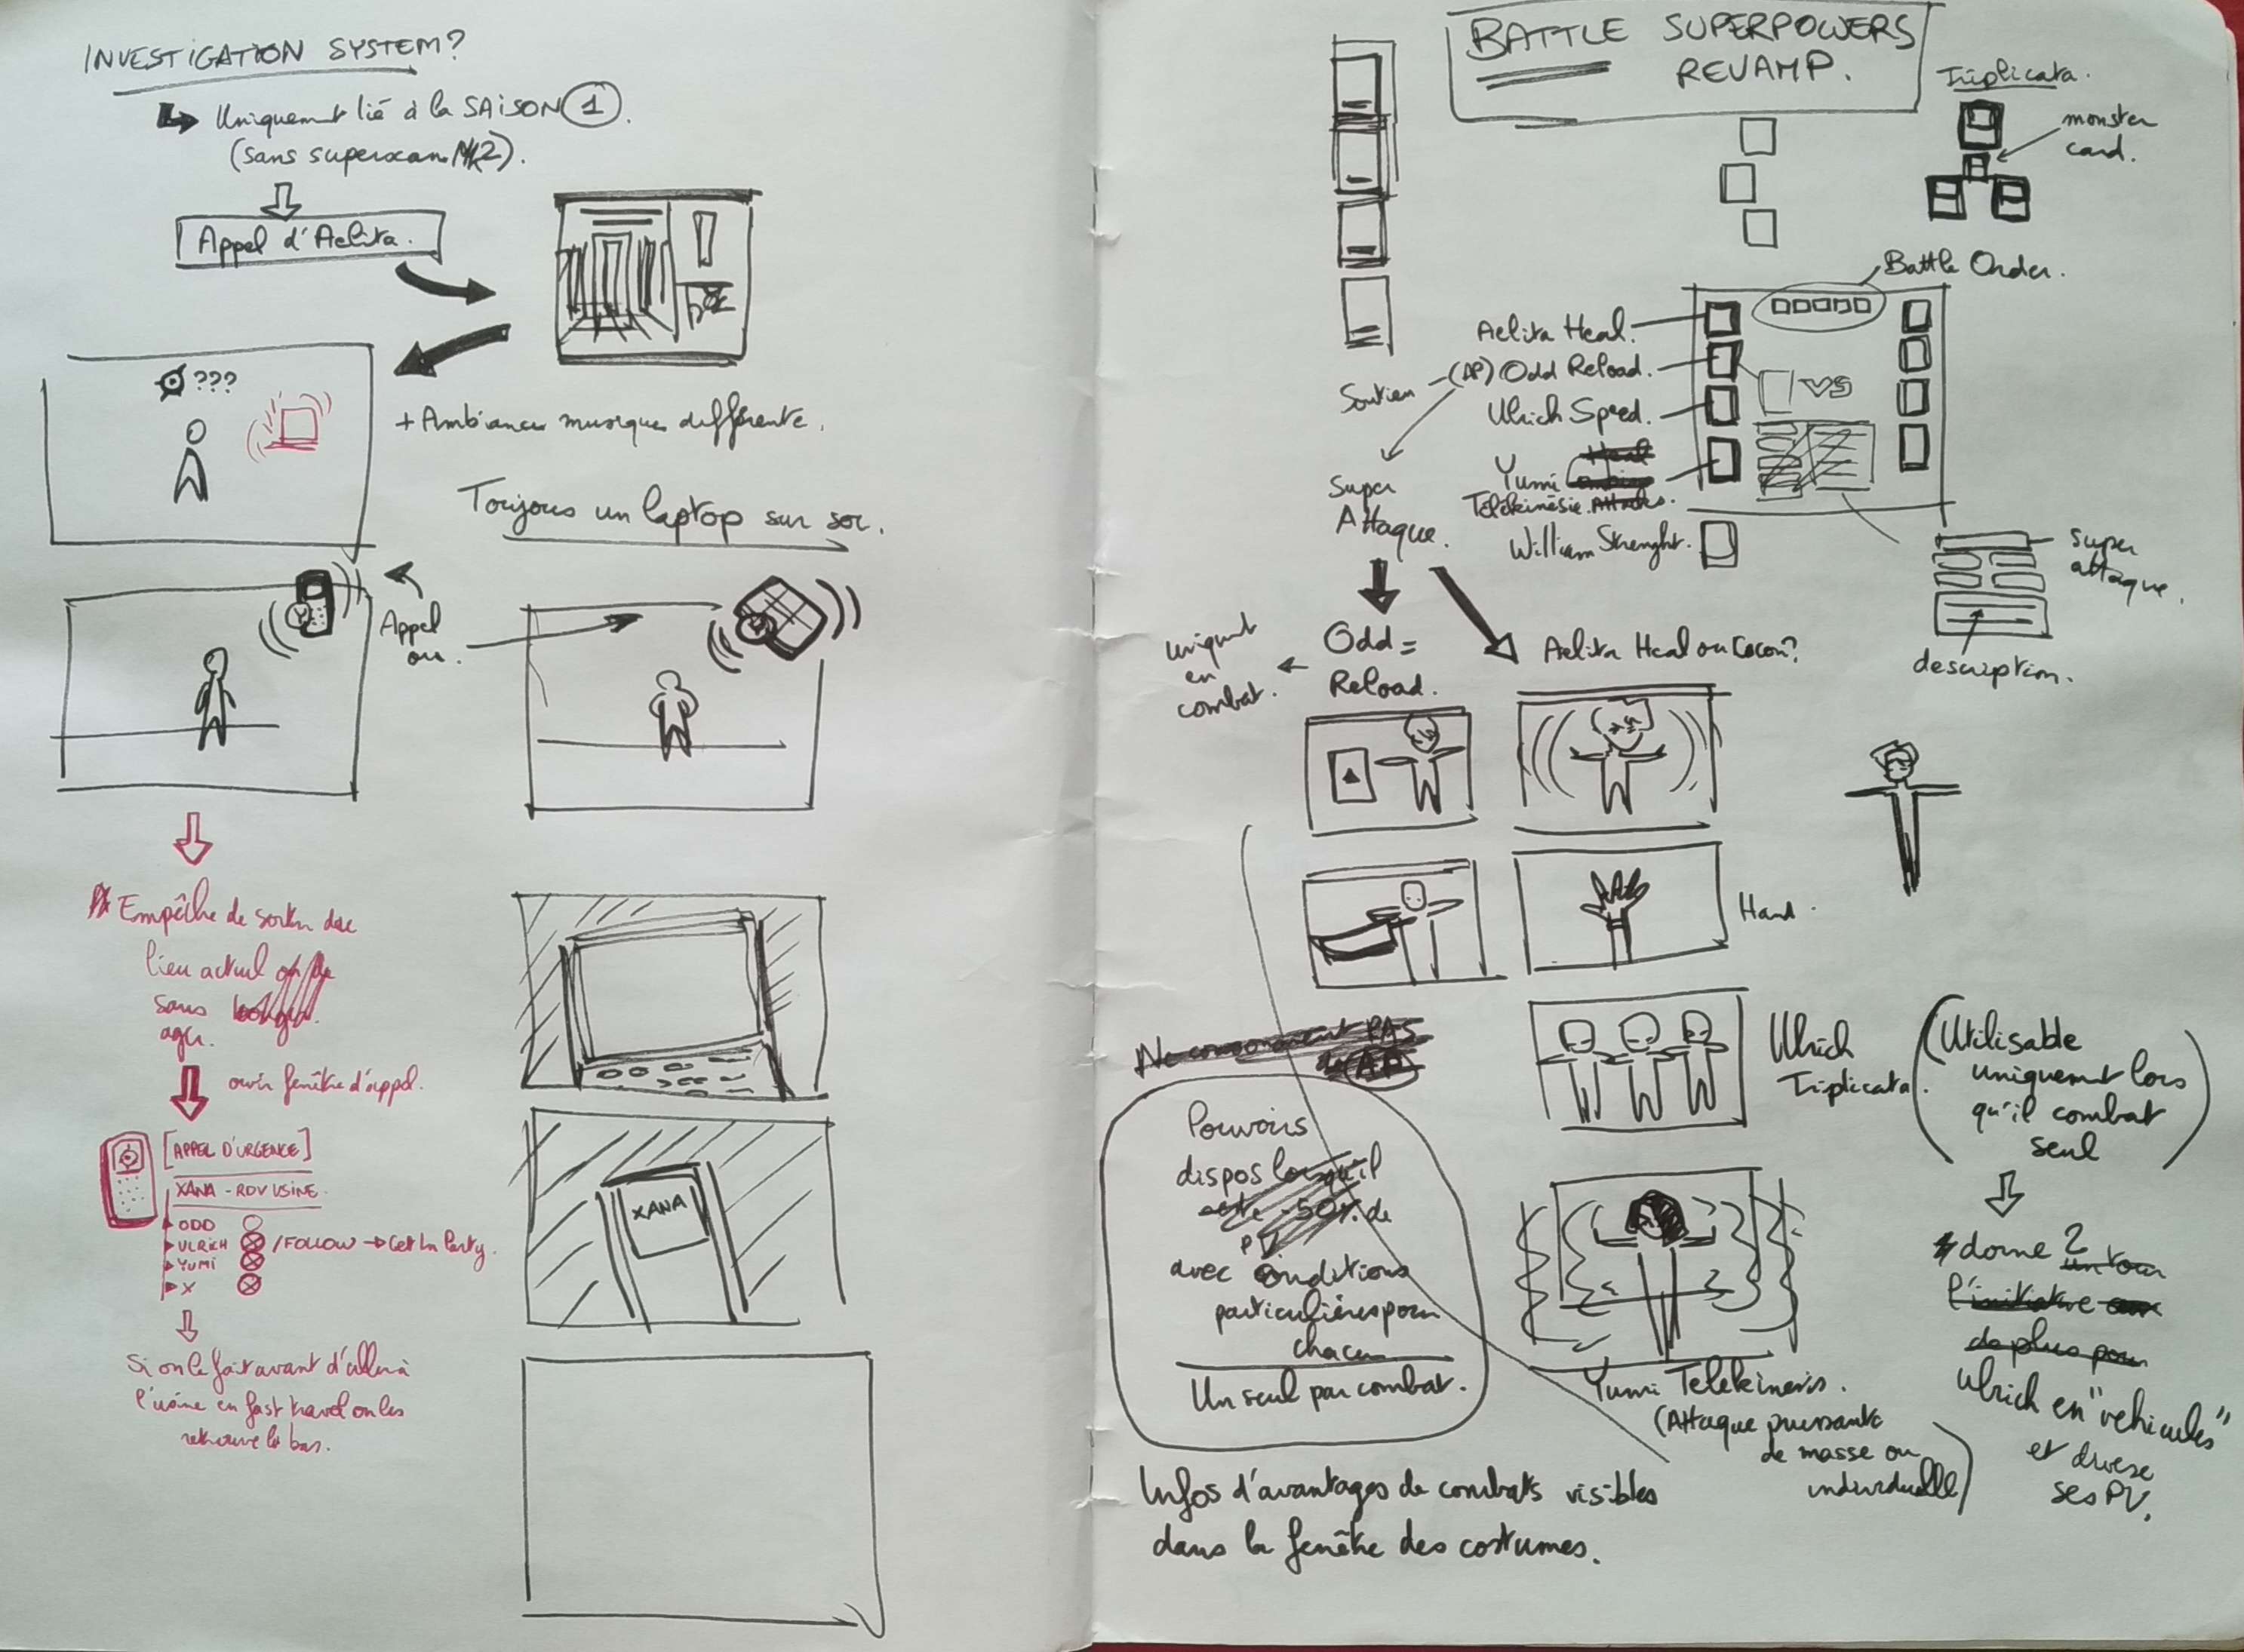 INVESTIGATION SYSTEM?
Uniquement lié à la SAISON 1.
(sans superscan MK2).
Appel d'Aelita.
???
+ Ambiance musique différente.
Toujours un laptop sur soi.
Appel
ou.
Empêche de sortir du
lieu actuel
sans
agir.
ouvrir fenêtre d'appel.
[APPEL D'URGENCE]
XANA - RDV USINE.
ODD
ULRICH /FOLLOW → Get In Party.
YUMI
X
Si on le fait avant d'aller à
l'usine en fast travel on les
retrouve là bas.
XANA
BATTLE SUPERPOWERS
REVAMP.
Triplicata.
monster
card.
Battle Order.
Aelita Heal.
Soutien
(AP) Odd Reload.
VS
Ulrich Speed.
Yumi Heal
Télékinésie Attacks.
William Strenght.
Super
Attaque.
super
attaque.
description.
uniqut
en
combat.
Odd =
Reload.
Aelita Heal ou Cocon?
Hand.
Ne consomment PAS
de AP
Ulrich
Triplicata.
(Utilisable
uniquement lors
qu'il combat
seul)
Pouvoirs
dispos lorsqu'il
-50% de
PV
avec conditions
particulières pour
chacun
Un seul par combat.
Yumi Telekinesis.
(Attaque puissante
de masse ou
individuelle)
donne 2 un tour
l'initiative
de plus pour
Ulrich en "vehicules"
et divise
ses PV.
Infos d'avantages de combats visibles
dans la fenêtre des costumes.